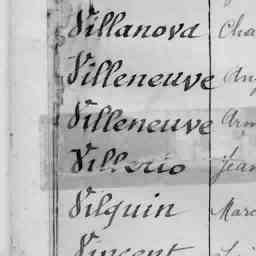 Villanova Cha
Villeneuve Aug
Villeneuve Arm
Villerio Jean
Vilquin Marc
Vincent